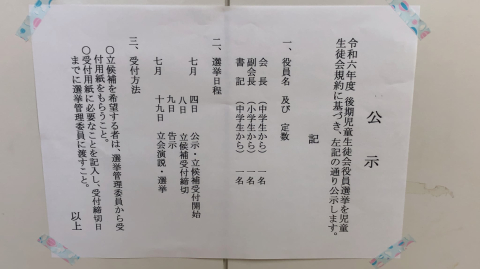 公示
令和六年度 後期児童生徒会役員選挙を児童
生徒会規約に基づき、左記の通り公示します。
記
一、役員名 及び 定数
会長 (中学生から) 一名
副会長 (小学生から) 一名
書記 (中学生から) 一名
二、選挙日程
七月 四日 公示・立候補受付開始
八日 立候補受付締切
九日 告示
七月 十九日 立会演説・選挙
三、受付方法
〇立候補を希望する者は、選挙管理委員から受
付用紙をもらうこと。
〇受付用紙に必要なことを記入し、受付締切日
までに選挙管理委員に渡すこと。
以上